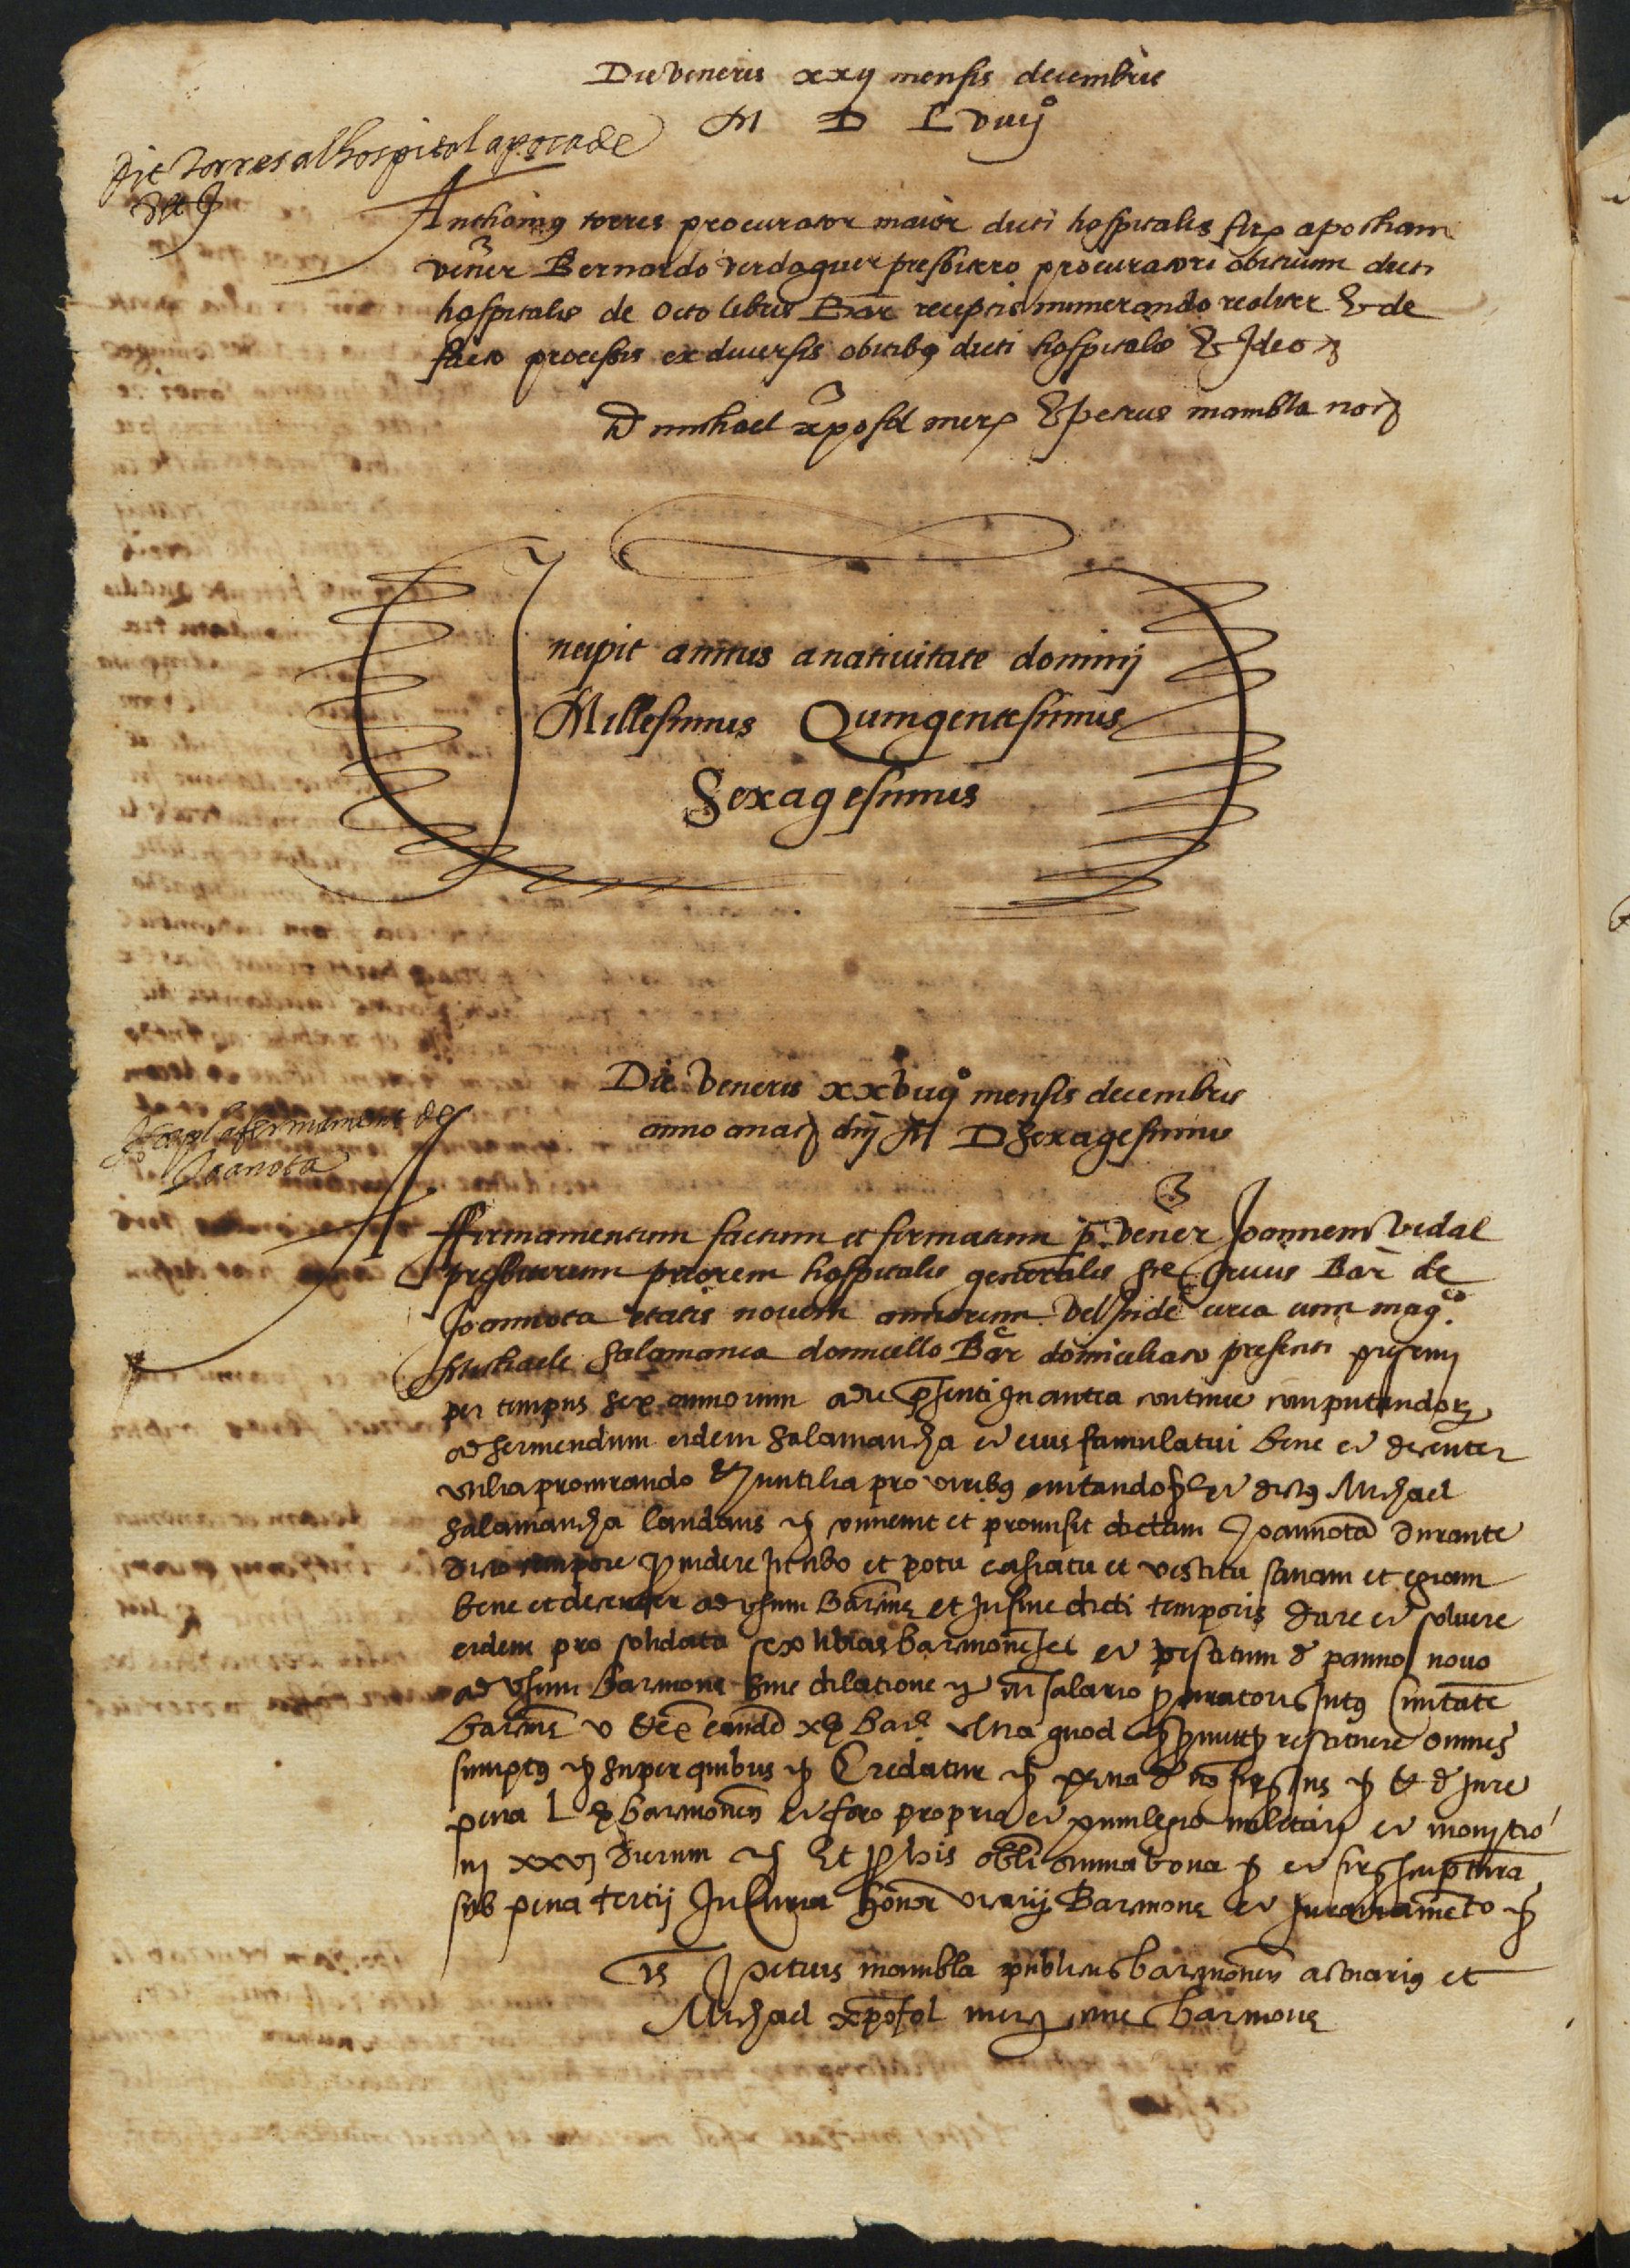 Die veneris xxij mensis decembris
M D L viiijº
Dit Torres al hospital apoca de
Anthonius torres procurator maior dicti hospitalis fir. apocham
vener Bernardo verdaguer presbitero procuratori obituum dicti
hospitalis de octo libris Bar receptis numerando realiter & de
facto processis ex diversis obitibus dicti hospitalis & Ideo
michael xpofol mer & petrus mambla not
Incipit annus a nativitate dominij
Millesimus Quingentesimus
Sexagesimus
Die Veneris xxviiijº mensis decembris
anno a nat dnj M D Sexagesimus
fermament de
Joanota
Affirmamentum factum et firmatum p. Vener Joannem Vidal
presbiterum priorem hospitalis generalis ste Crucis Bar de
Joannota etatis novem annorum vel inde circa cum mag.co
Michaele Salamanca domicello Bar domiciliato presenti
per tempus sex annorum a die psenti In antea continue computandor
ad serviendum eidem Salamancha et eius famulatui bene et decenter
utilia procurando & inutilia pro viribus evitando Et dictus Michael
Salamancha laudans convenit et promisit dictam Joannota durante
dicto tempore providere in cibo et potu calciatu et vestitu sanam et egram
bene et decenter ad usum Barcine et In fine dicti temporis dare et solvere
eidem pro soldata sex libras barcinonesies et vestitum d panno novo
ad usum barcinone sine dilatione salario procuratoris intus Civitate
barcine v extra eande x bar ultra quod restituere omnes
sumptus super quibus Credatur
pena L barcinonen et foro proprio et privilegio militari et
xxvj dierum Et p his obli omnia bona et scriptura
sub pena tertij In Curia honor vicarij Barcinone et Juramento
Ts petrus mambla publicus barcinonen notarius et
Michael xpofol mer cive barcinone